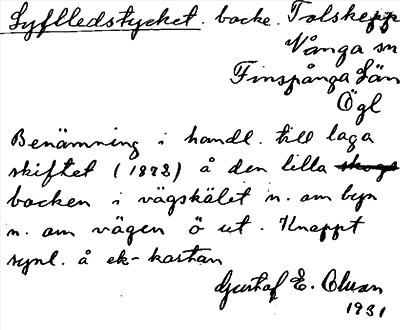 Lyftledstycket. backe. Tolskepp
Vånga sn
Finspånga Län
Ögl
Benämning i handl. till laga
skiftet (1872) å den lilla
backen i vägskälet n. om byn
n. om vägen ö ut. Knappt
synl. å ek-kartan
Gustaf E.
1931